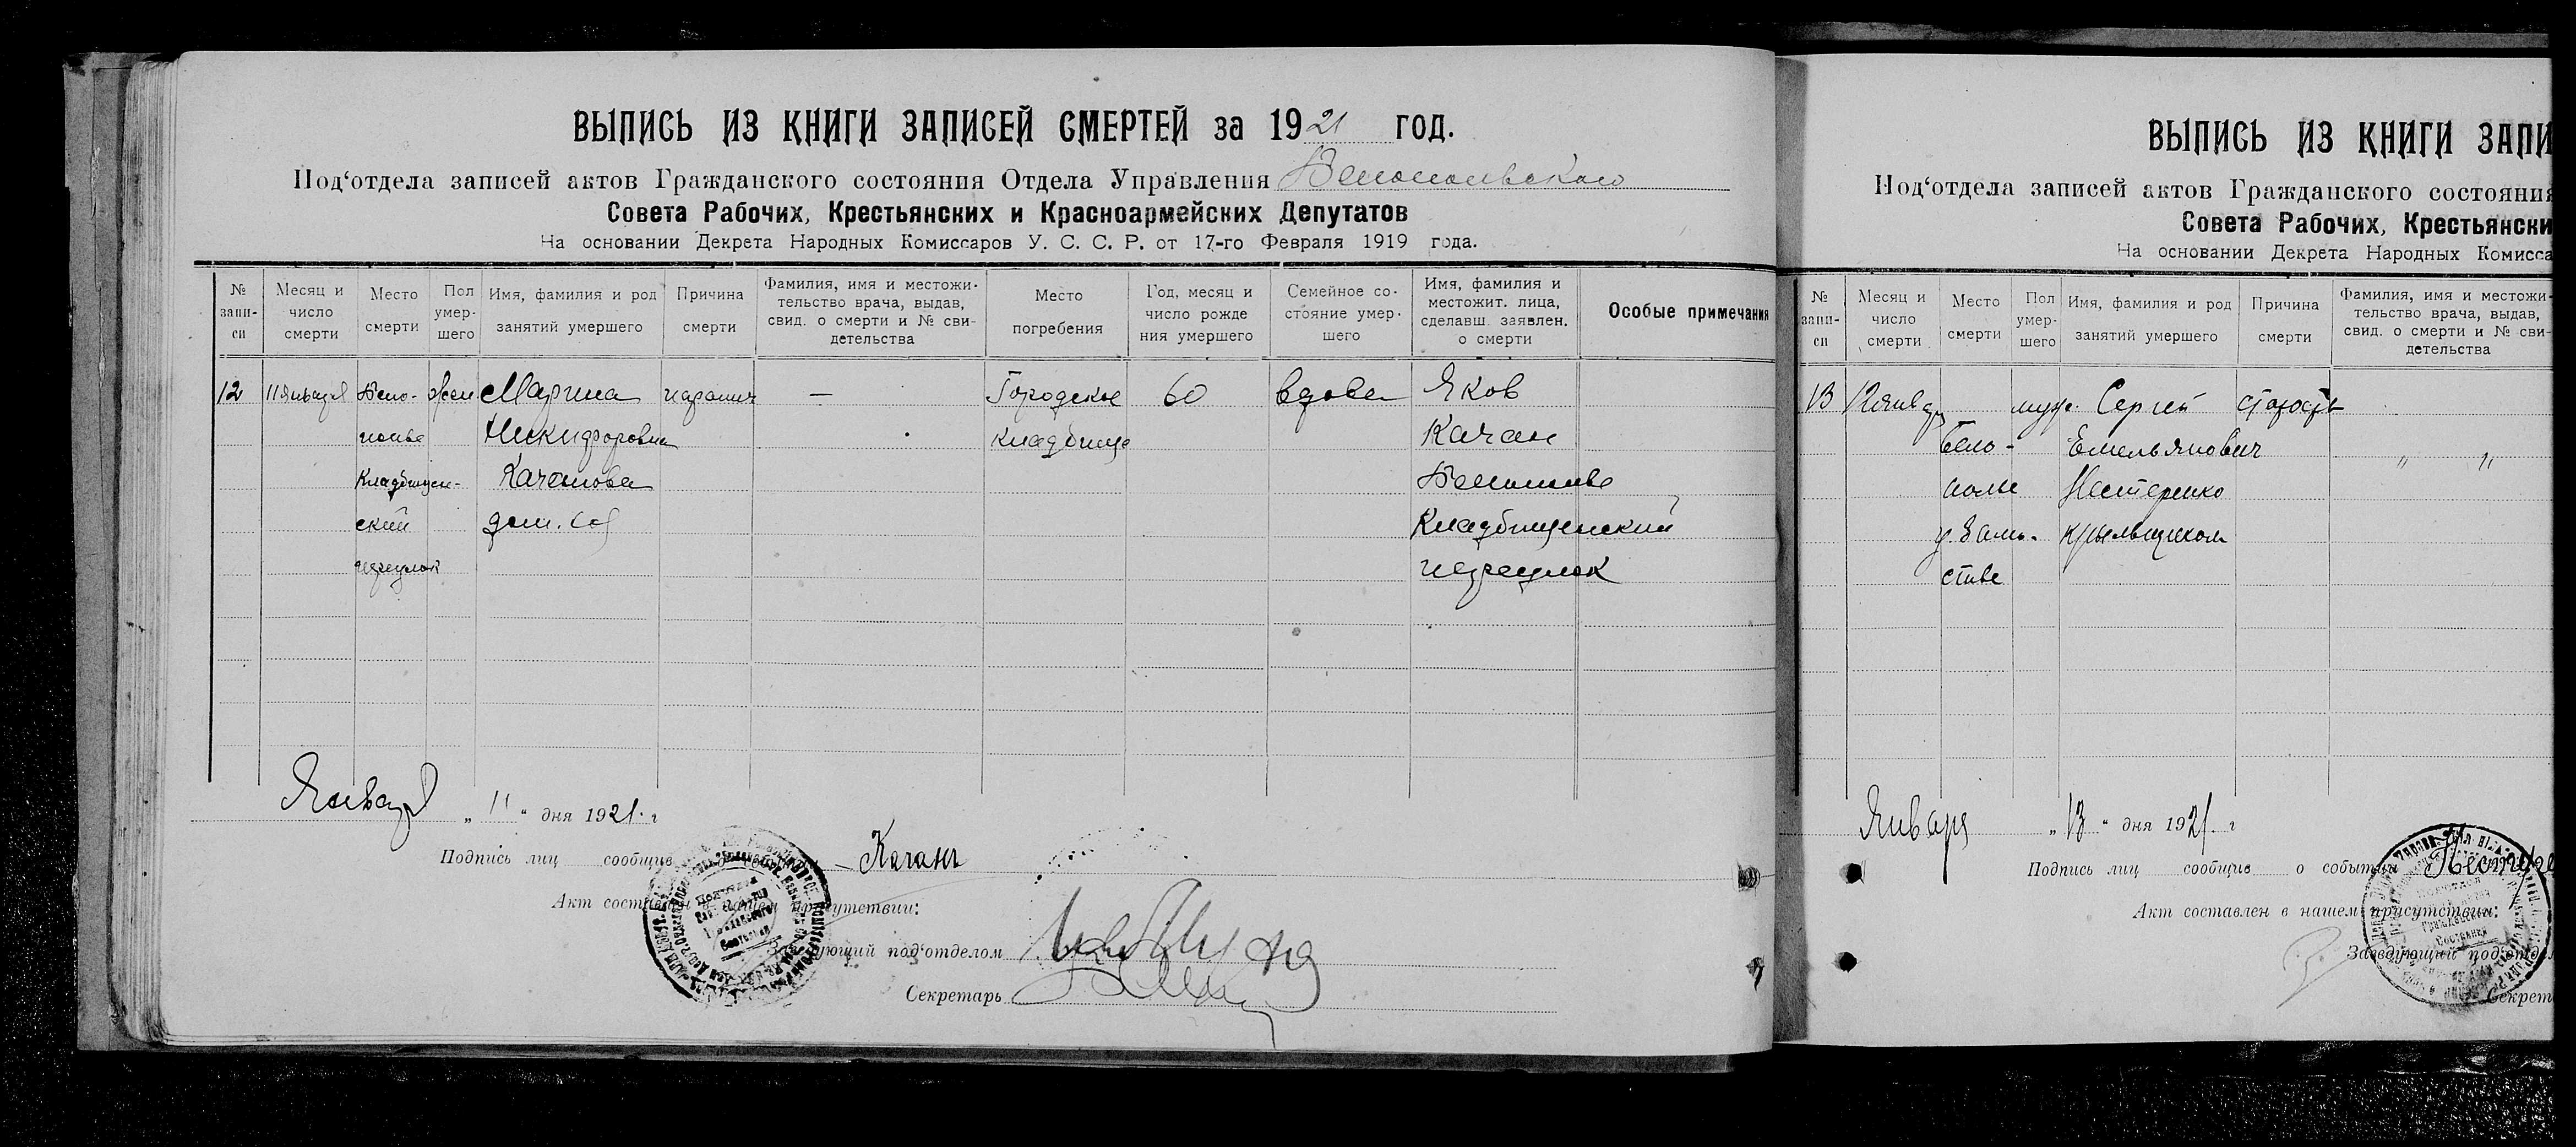 ВЫПИСЬ ИЗ КНИГИ ЗАПИСЕЙ СМЕРТЕЙ за 1921 год.
Под‘отдела записей актов Гражданского состояния Отдела Управления
Совета Рабочих, Крестьянских и Красноармейских Депутатов
На основании Декрета Народных Комиссаров У. С. С. Р. от 17-го Февраля 1919 года.
№ запи-
си
Месяц и
число
смерти
Место
смерти
Пол
умер-
шего
Имя, фамилия и род
занятий умершего
Причина
смерти
Фамилия, имя и местожи-
тельство врача, выдав,
свид. о смерти и № сви-
детельства
Место
погребения
Год, месяц и
число рожде
ния умершего
Семейное со-
стояние умер-
шего
Имя, фамилия и
местожит. лица,
сделавш. заявлен.
о смерти
Особые примечания
12
11 января
Бело-
полье
Кладбищен-
ский
переулок
жен
Марина
Никифоровна
Качанова
дом.
паралич
—
Городское
кладбище
60
вдова
Яков
Качан
Белополье
Кладбищенский
переулок
Января „11“ дня 1921 г
Подпись лиц сообщив Качанъ
Акт составлен в нашем присутствии:
Заведующий под‘отделом
Секретарь
ВЫПИСЬ ИЗ КНИГИ ЗАПИ
Под‘отдела записей актов Гражданского состояния
Совета Рабочих, Крестьянски
На основании Декрета Народных Комисса
№
запи-
си
Месяц и
число
смерти
Место
смерти
Пол
умер-
шего
Имя, фамилия и род
занятий умершего
Причина
смерти
Фамилия, имя и местожи-
тельство врача, выдав,
свид. о смерти и № сви-
детельства
13
12 январ
Бело-
полье
муж.
Сергей
Емельянович
Нестеренко
старость
" "
Января „13“ дня 1921 г
Подпись лиц сообщив о событии
Акт составлен в нашем присутствии:
Заведующий под‘отдел
Секрет